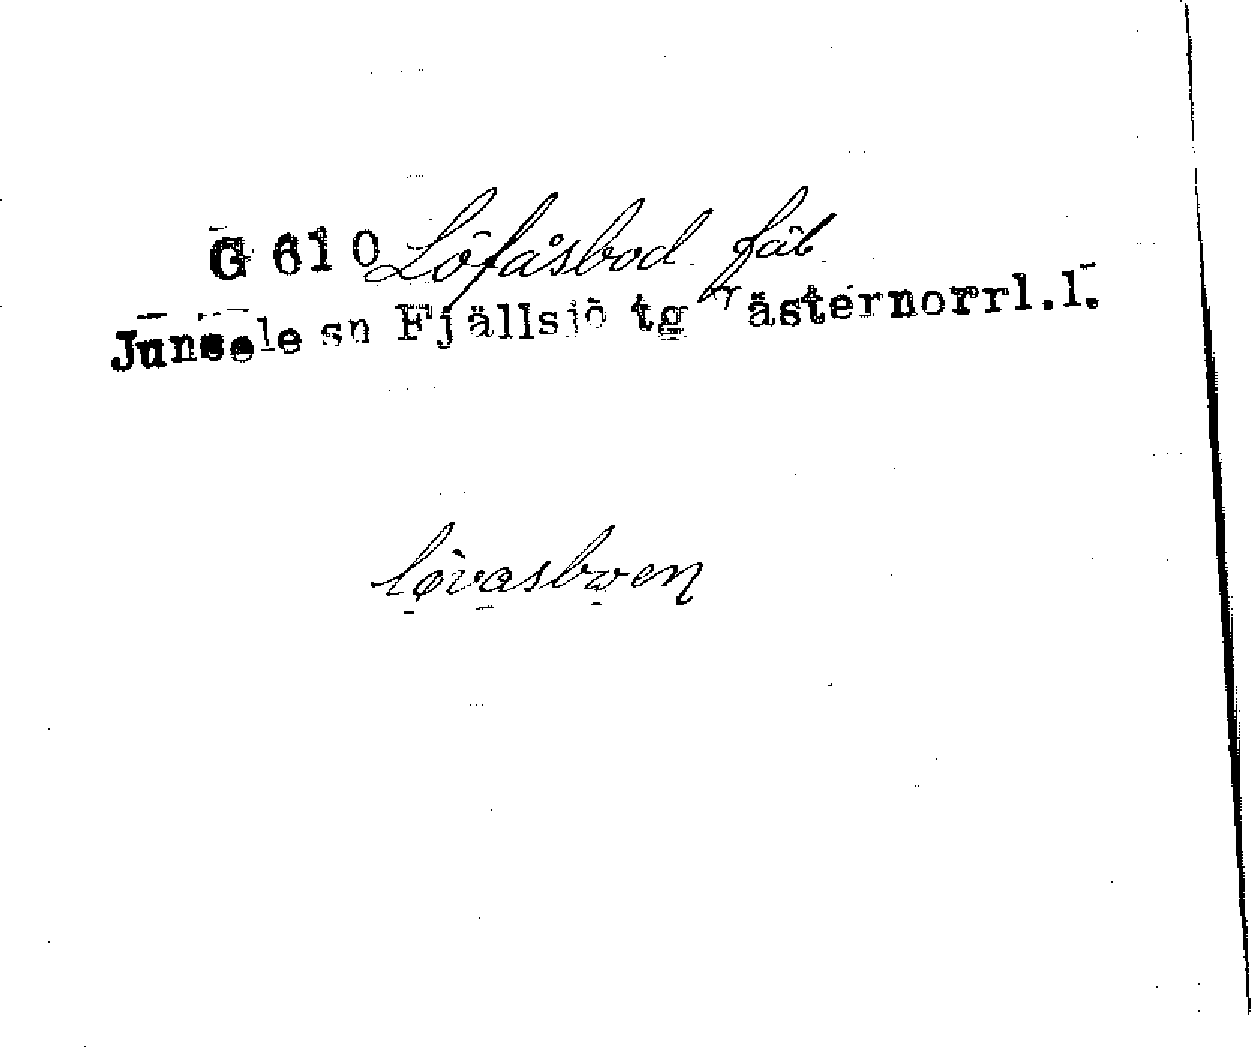 G 610 Löfåsbod fäb
Junsele sn Fjällsjö tg Västernorrl.l.
lø̀vasbωen